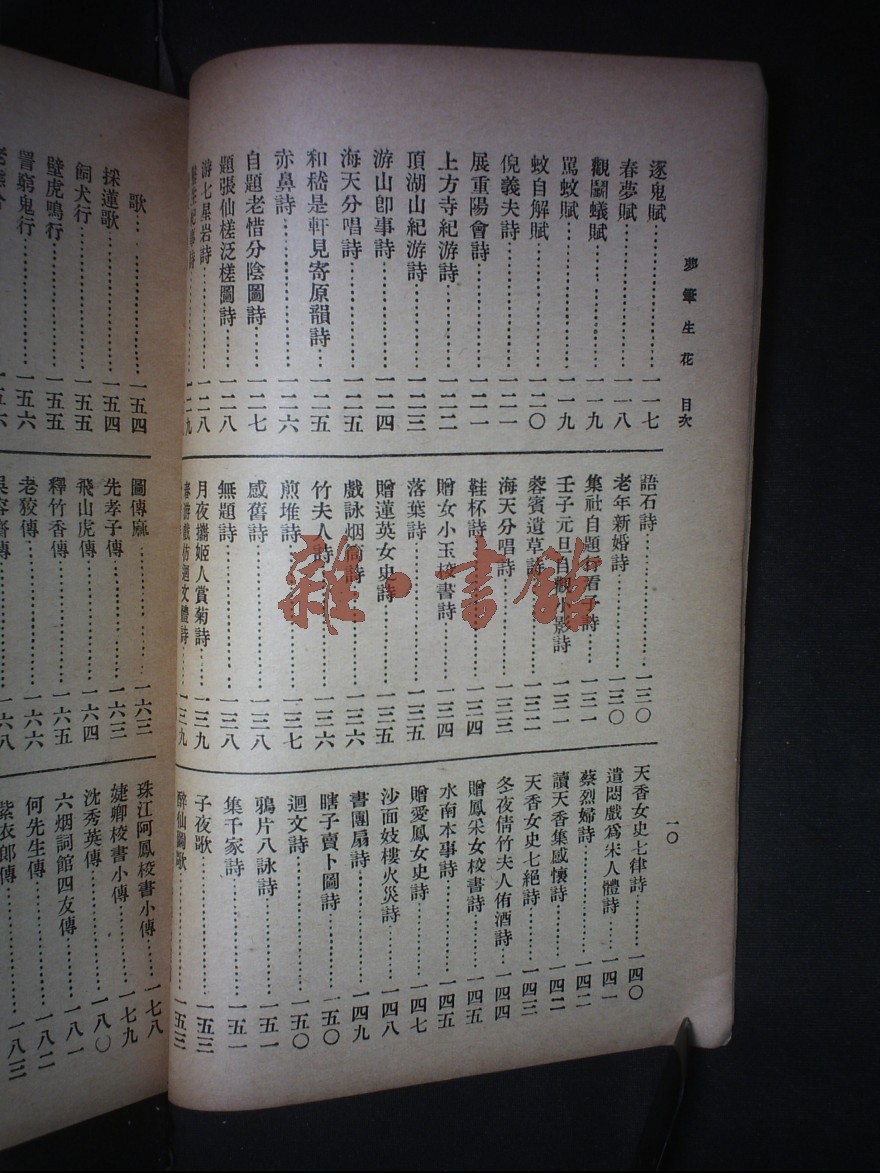 夢筆生花 目次
一〇
逐鬼賦…………一一七
春夢賦…………一一八
觀鬭蟻賦…………一一九
罵蚊賦…………一一九
蚊自解賦…………一二〇
倪義夫詩…………一二一
展重陽會詩…………一二一
上方寺紀游詩…………一二二
頂湖山紀游詩…………一二三
游山卽事詩…………一二四
海天分唱詩…………一二五
和嵇是軒見寄原韻詩…………一二五
赤鼻詩…………一二六
自題老惜分陰圖詩…………一二七
題張仙槎泛槎圖詩…………一二八
游七星岩詩…………一二八
語石詩…………一三〇
老年新婚詩…………一三〇
集社自題行看子詩…………一三一
壬子元旦自觀小影詩…………一三一
蓉賓遺草詩…………一三二
海天分唱詩…………一三三
鞋杯詩…………一三四
贈女小玉校書詩…………一三四
落葉詩…………一三五
贈蓮英女史詩…………一三五
戲詠烟筒詩…………一三六
竹夫人詩…………一三六
煎堆詩…………一三七
感舊詩…………一三八
無題詩…………一三八
月夜攜姬人賞菊詩…………一三九
天香女史七律詩…………一四〇
遣悶戲爲宋人體詩…………一四一
蔡烈婦詩…………一四二
讀天香集感懷詩…………一四二
天香女史七絕詩…………一四三
冬夜倩竹夫人侑酒詩…………一四四
贈鳳采女校書詩…………一四五
水南本事詩…………一四五
贈愛鳳女史詩…………一四七
沙面妓樓火災詩…………一四八
書團扇詩…………一四九
瞎子賣卜圖詩…………一五〇
迴文詩…………一五〇
鴉片八詠詩…………一五一
集千家詩…………一五一
子夜歌…………一五三
醉仙圖歌…………一五三
歌…………一五四
採蓮歌…………一五四
飼犬行…………一五五
壁虎鳴行…………一五五
詈窮鬼行…………一五六
圖傳麻…………一六三
先孝子傳…………一六三
飛山虎傳…………一六四
釋竹香傳…………一六五
老狡傳…………一六六
吳容齋傳…………一六八
珠江阿鳳校書小傳…………一七八
婕卿校書小傳…………一七九
沈秀英傳…………一八〇
六烟詞館四友傳…………一八一
何先生傳…………一八二
紫衣郎傳…………一八三
雜·書館